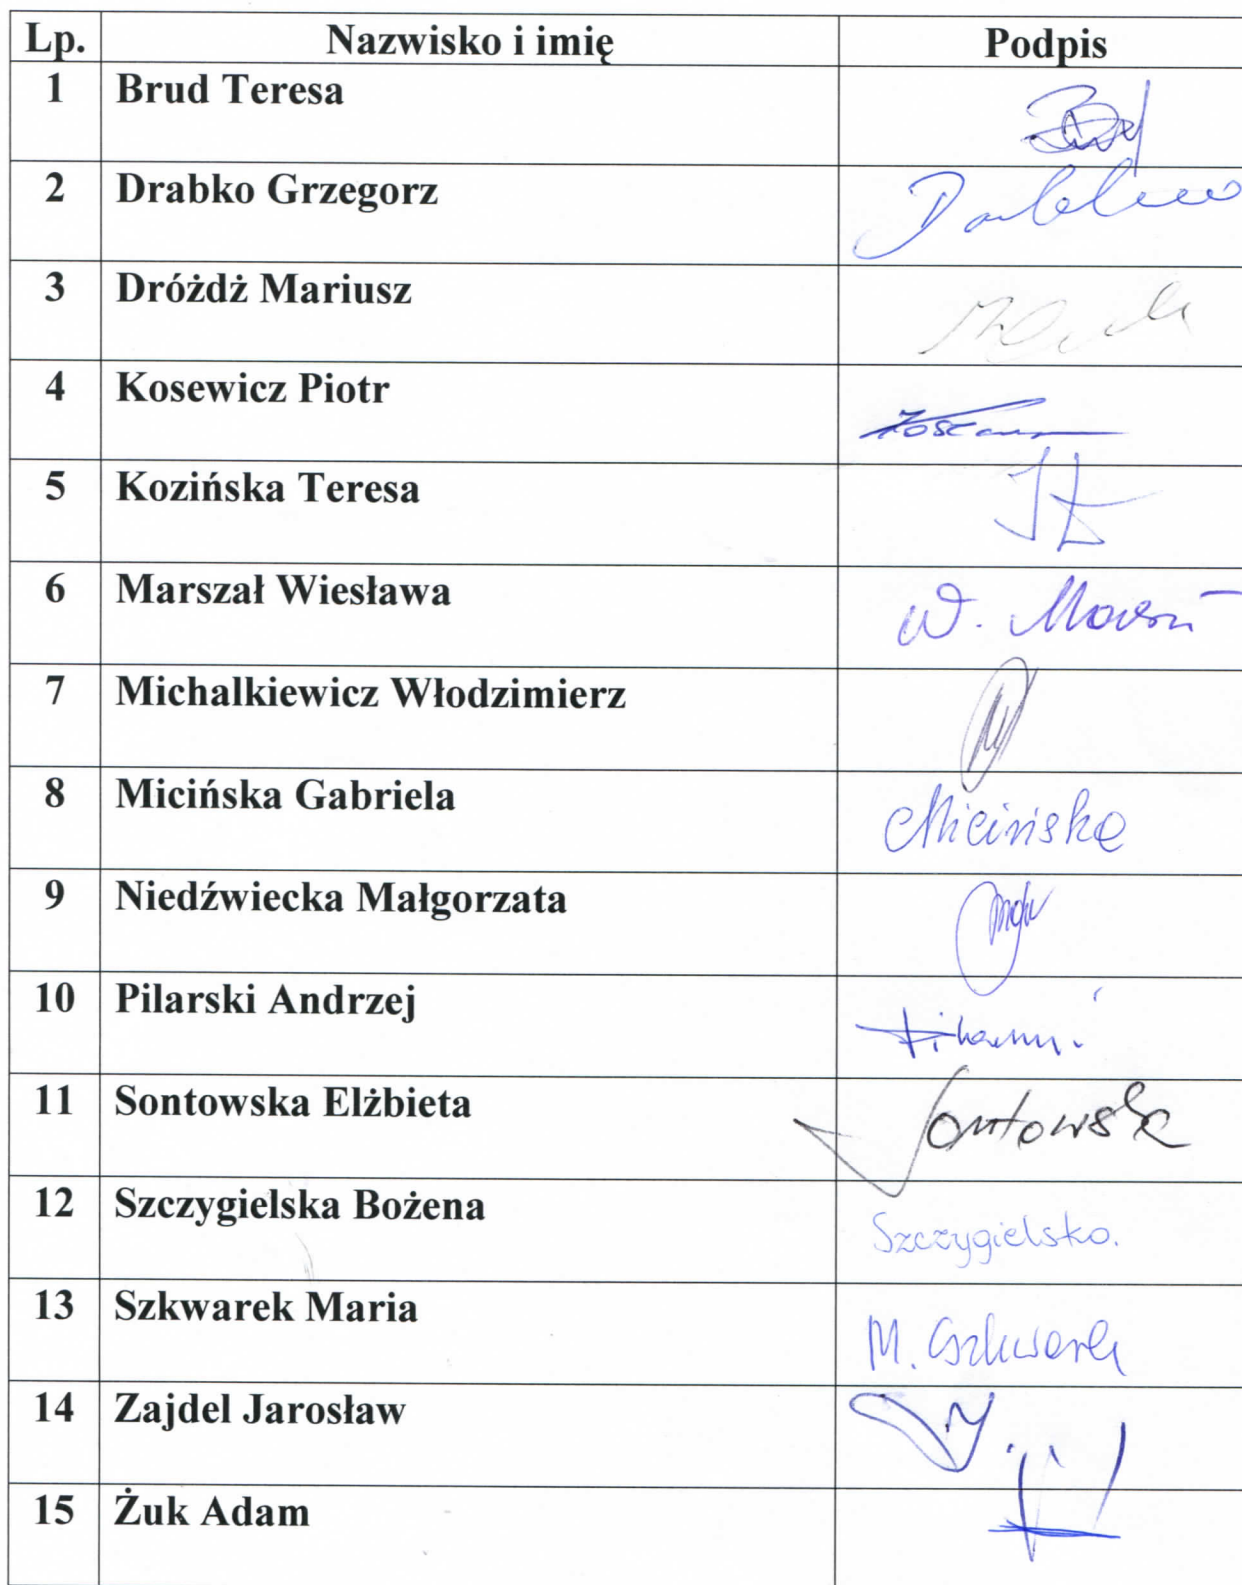 Lp. Nazwisko i imię Podpis
1 Brud Teresa
2 Drabko Grzegorz
3 Dróżdż Mariusz
4 Kosewicz Piotr
5 Kozińska Teresa
6 Marszał Wiesława W.
7 Michalkiewicz Włodzimierz
8 Micińska Gabriela Micińska
9 Niedźwiecka Małgorzata
10 Pilarski Andrzej
11 Sontowska Elżbieta Sontowska
12 Szczygielska Bożena Szczygielska.
13 Szkwarek Maria M. Szkwarek
14 Zajdel Jarosław
15 Żuk Adam